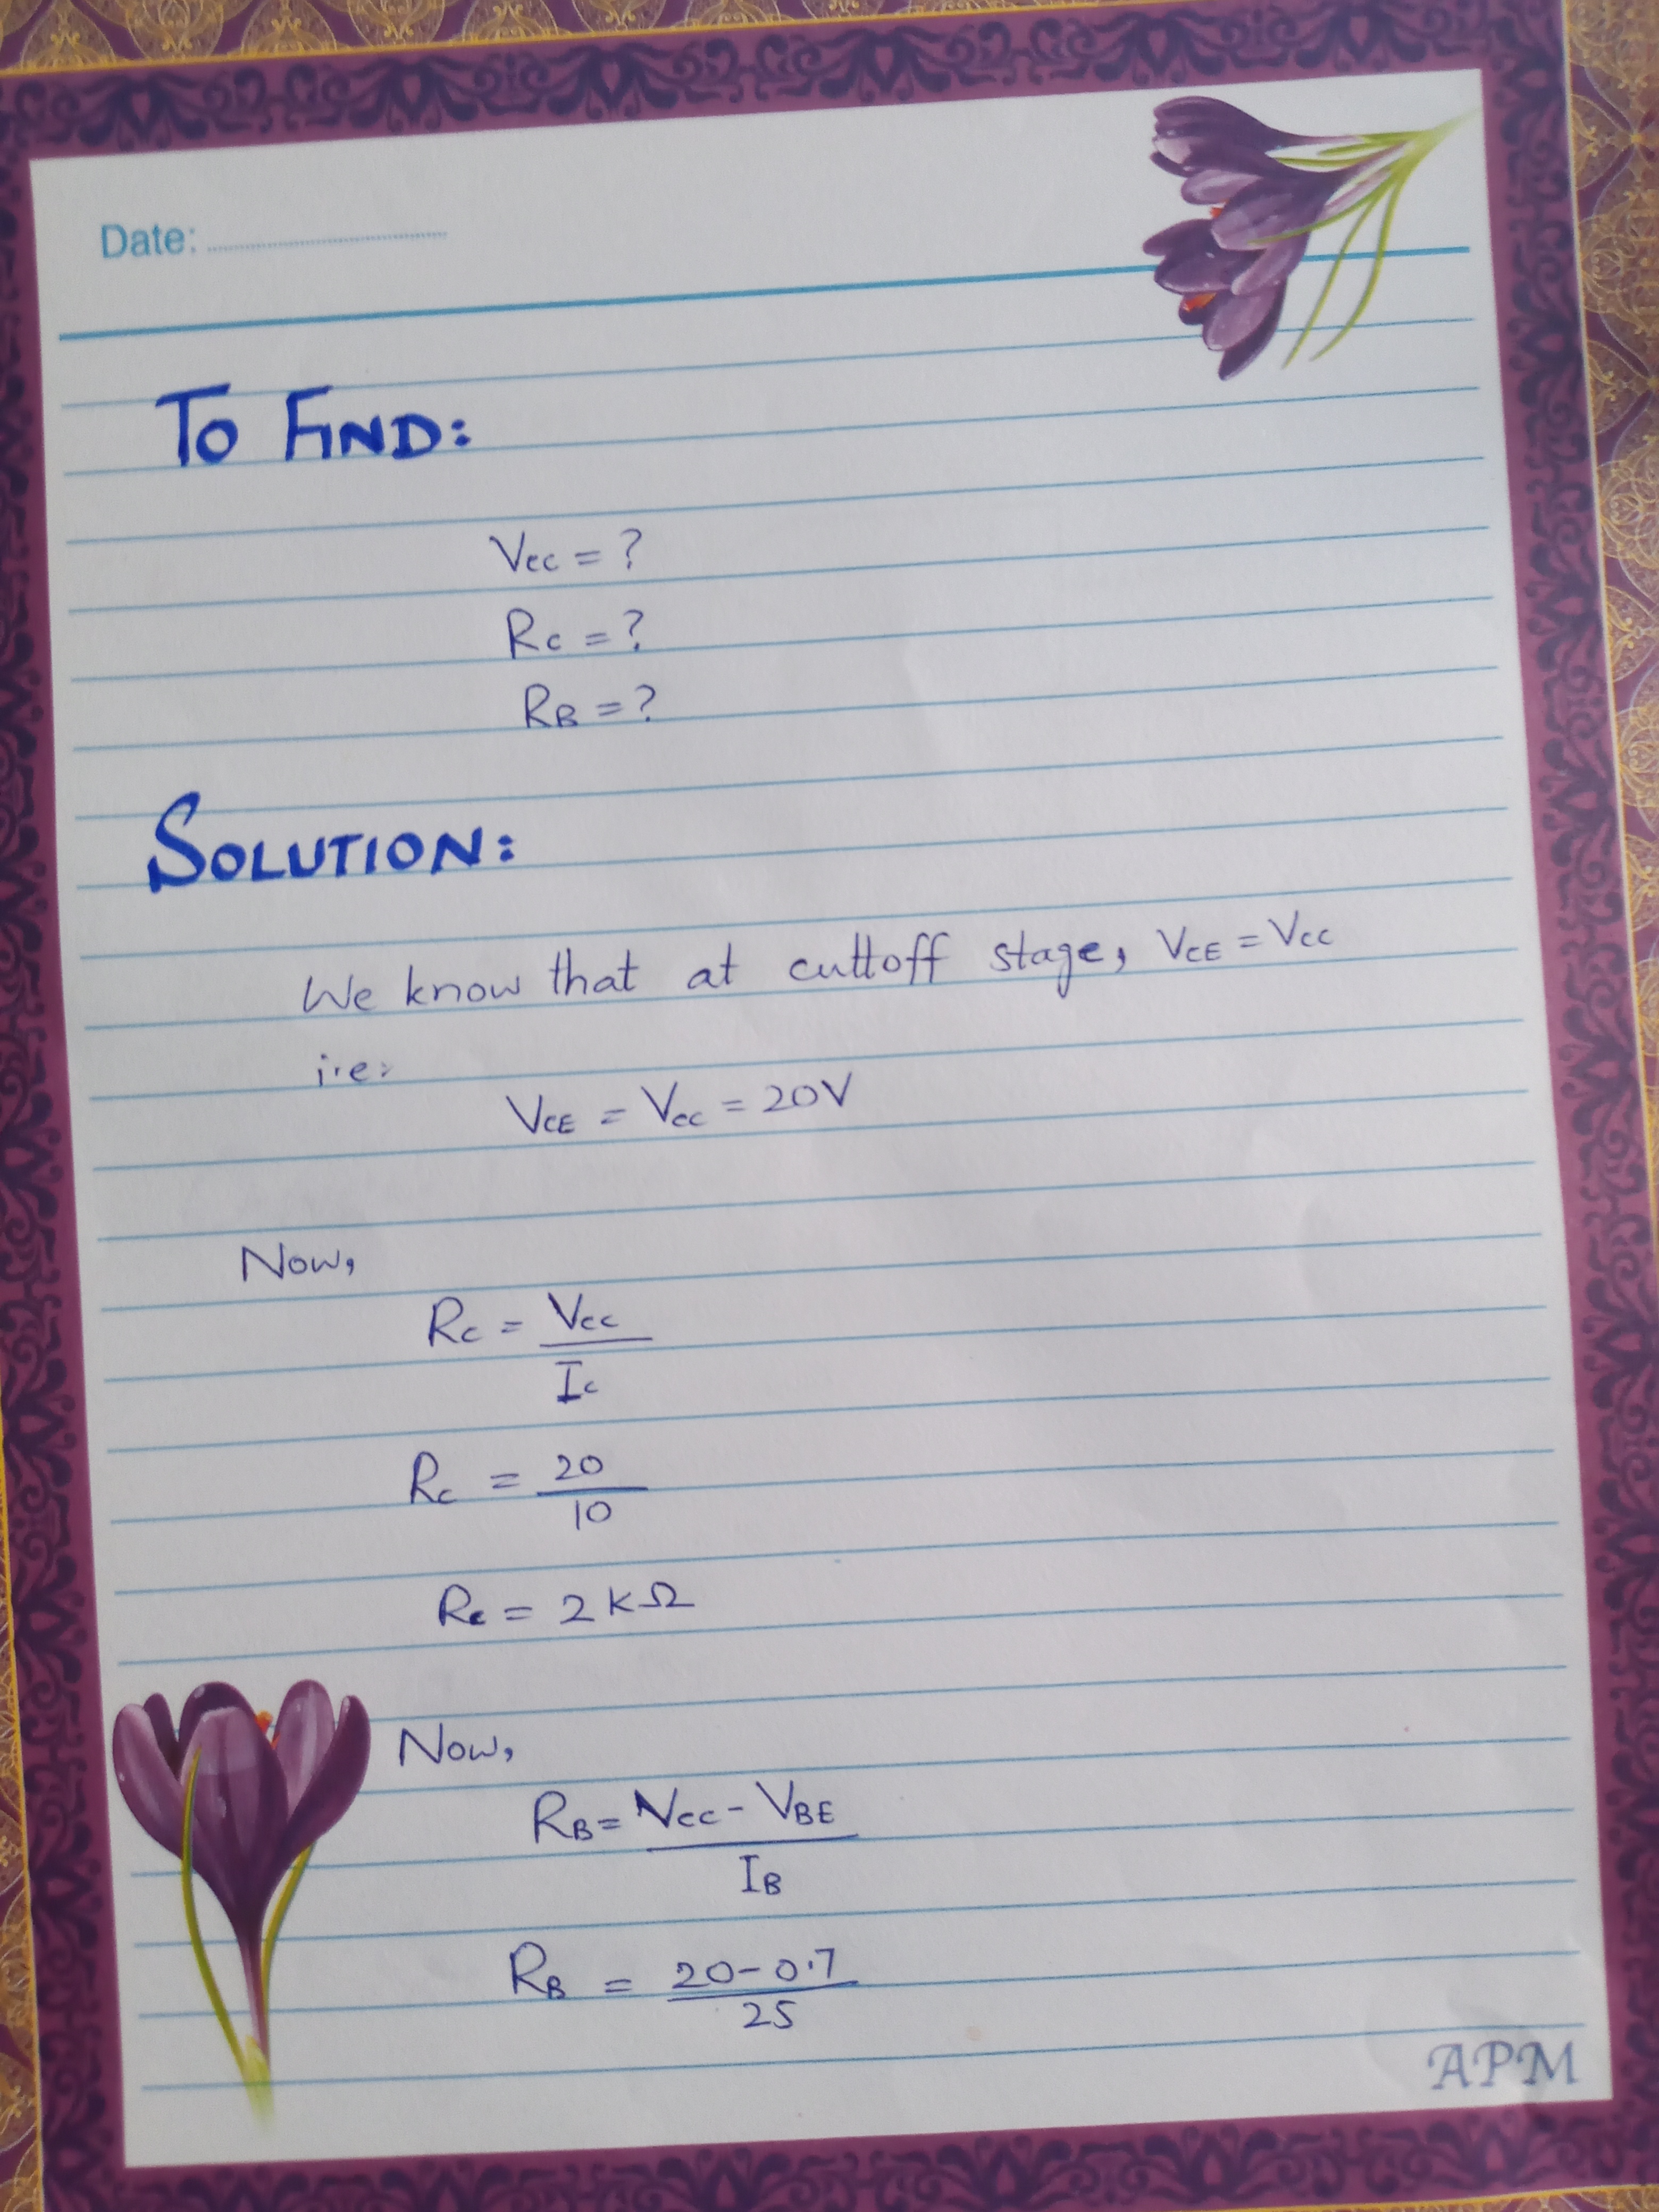 Date:
TO FIND:
Vcc = ?
Rc = ?
RB = ?
SOLUTION:
We know that at cuttoff stage, VCE = Vcc
i.e:
VCE = Vcc = 20V
Now,
Rc = Vcc
Ic
Rc = 20
10
Rc = 2 KΩ
Now,
RB = Vcc - VBE
IB
RB = 20-0.7
25
APM